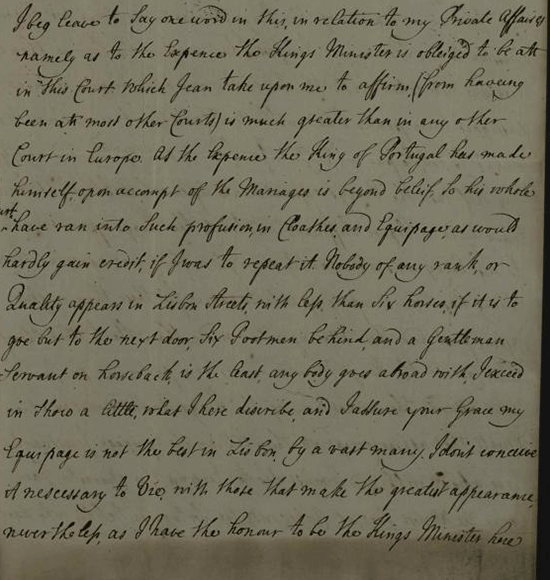 I beg leave to Say one word in this, in relation to my Private Affairs
namely as to the Expence the Kings Minister is obleiged to be att
in This Court which I can take upon me to affirm, (from haveing
been att most other Courts) is much greater than in any other
Court in Europe. As the Expence the King of Portugal has made
himself, upon accompt of the Mariages is beyond beleif, So his whole
have ran into Such profusion, in Cloathes, and Equipage, as would
hardly gain credit, if I was to repeat it. Nobody of any rank, or
Quality appears in Lisbon Streets, with less, than Six horses, if it is to
goe but to the next door, Six Footmen behind, and a Gentleman
Servant on horseback, is the least, any body goes abroad with, I exceed
in Show a little, what I here discribe, and I assure your Grace my
Equipage is not the best in Lisbon, by a vast many. I don't conceive
it nescessary to Vie, with those that make the greatest appearance,
neverthelesse, as I have the honour to be the Kings Minister here